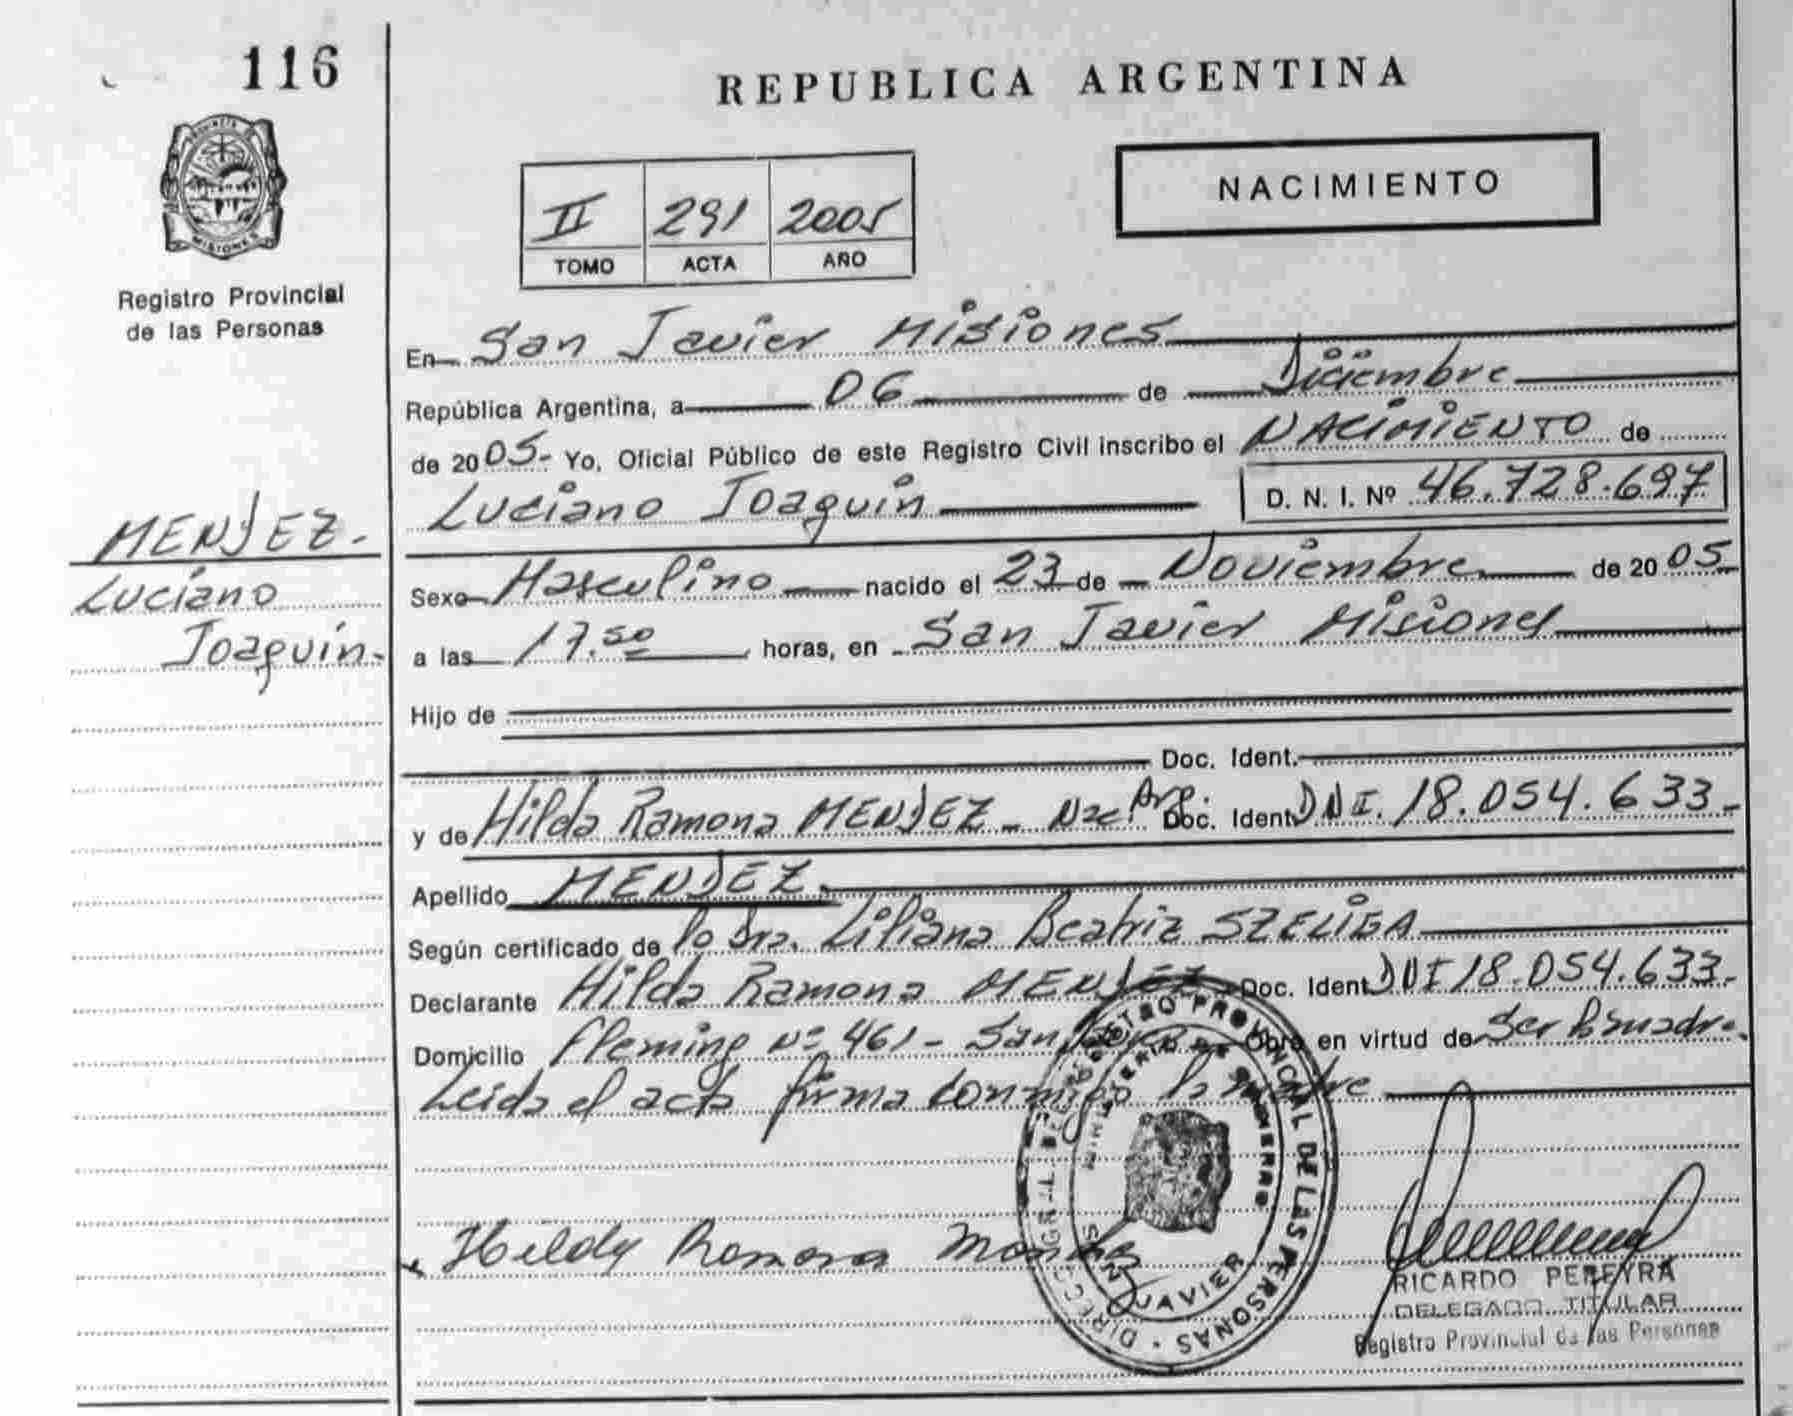 116
REPUBLICA ARGENTINA
PROVINCIA DE
MISIONES
NACIMIENTO
II 291 2005
TOMO ACTA AÑO
Registro Provincial
de las Personas
En San Javier Misiones
República Argentina, a 06 de Diciembre
de 2005- Yo, Oficial Público de este Registro Civil inscribo el NACIMIENTO de
Luciano Joaquín D. N. I. Nº 46.728.697
MENDEZ.-
Luciano
Joaquín.-
Sexo Masculino nacido el 23 de Noviembre de 2005
a las 17.50 horas, en San Javier Misiones
Hijo de
Doc. Ident.
y de Hilda Ramona MENDEZ - Nac Arg. Doc. Ident DNI. 18.054.633.-
Apellido MENDEZ.
Según certificado de la Dra. Liliana Beatriz SZELIGA
Declarante Hilda Ramona MENDEZ Doc. Ident DNI 18.054.633.-
Domicilio Fleming Nº 461 - San Javier - Obra en virtud de Ser la madre
Leída el acta firma conmigo la madre
Ramona
REGISTRO PROVINCIAL DE LAS PERSONAS
MINISTERIO DE GOBIERNO
SAN JAVIER
RICARDO PEREYRA
DELEGADO TITULAR
Registro Provincial de las Personas